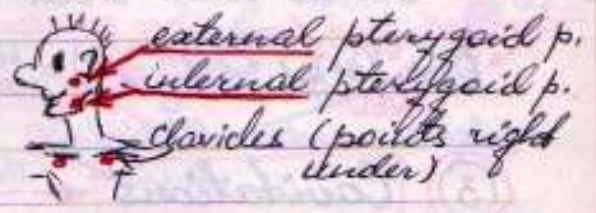 external pterygoid p.
internal pterygoid p.
clavicles (points right
under)